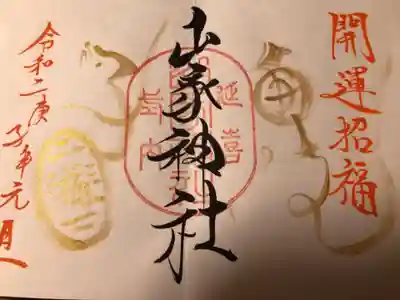 開運招福
山家神社
延喜
式内
令和二庚子年元旦